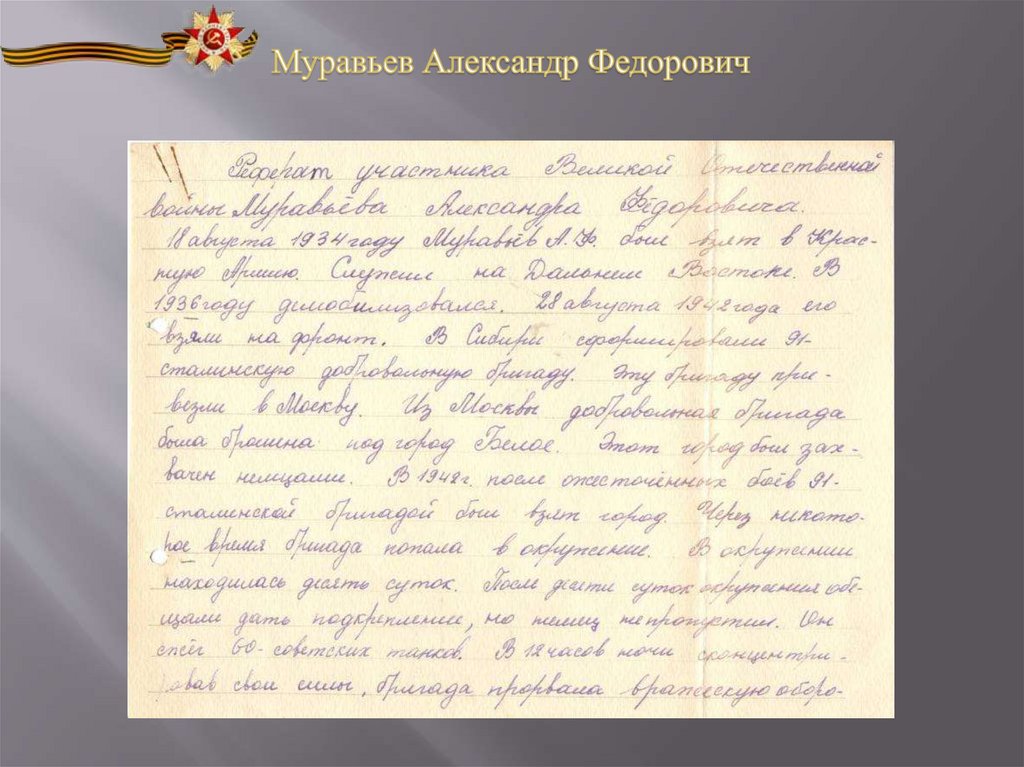 Муравьев Александр Федорович
Реферат участника Великой Отечественной
войны Муравьёва Александра Фёдоровича.
18 августа 1934 году Муравьёв А.Ф. был взят в Крас-
ную Армию. Служил на Дальнем Востоке. В
1936 году демобилизовался. 28 августа 1942 года его
взяли на фронт. В Сибири сформировали 91-
сталинскую добровольную бригаду. Эту бригаду при-
везли в Москву. Из Москвы добровольная бригада
была брошена под город Белое. Этот город был зах-
вачен немцами. В 1942 г. после ожесточённых боёв 91-
сталинской бригадой был взят город. Через никото-
рое время бригада попала в окружение. В окружении
находилась десять суток. После десяти суток окружения обе-
щали дать подкрепление, но немец не пропустил. Он
сжёг 60-советских танков. В 12 часов ночи сконцентри-
ровав свои силы, бригада прорвала вражескую оборо-